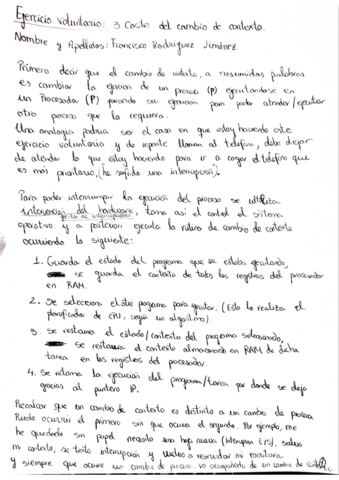 Ejercicio Voluntario: 3. Coste del cambio de contexto.
Nombre y Apellidos: Francisco Rodriguez Jiménez
Primero decir que el cambio de contexto, a resumidas palabras
es cambiar la ejecución de un proceso (p) ejecutandose en
un Procesador (P) parando su ejecución para poder atender/ejecutar
otro proceso que lo requiera.
Una analogía podría ser el caso en que estoy haciendo este
ejercicio voluntario y de repente llaman al teléfono, debo dejar
de atender lo que estoy haciendo para ir a coger el teléfono que
es más prioritario, (he sufrido una interrupción).
Para poder interrumpir la ejecución del proceso se utiliza
del hardware, toma así el control el sistema
operativo y a posteriori ejecuta la rutina de cambio de contexto
ocurriendo lo siguiente:
1. Guarda el estado del programa que se estaba ejecutando,
se guarda el contexto de todos los registros del procesador
en RAM.
2. Se selecciona el otro programa para ejecutar. (Esto lo realiza el
planificador de CPU, según un algoritmo).
3. Se restaura el estado/contexto del programa seleccionado,
se restaura el contexto almacenado en RAM de dicha
tarea en los registros del procesador.
4. Se retoma la ejecución del programa/tarea por donde se dejó
gracias al puntero IP.
Recalcar que un cambio de contexto es distinto a un cambio de proceso.
Puede ocurrir el primero sin que ocurra el segundo. Por ejemplo, me
he quedado sin papel necesito una hoja nueva (Interrupción E/S), salvo
mi contexto, se trata interrupción y vuelvo a reanudar mi escritura
y siempre que ocurre un cambio de proceso, va acompañado de un cambio de contexto